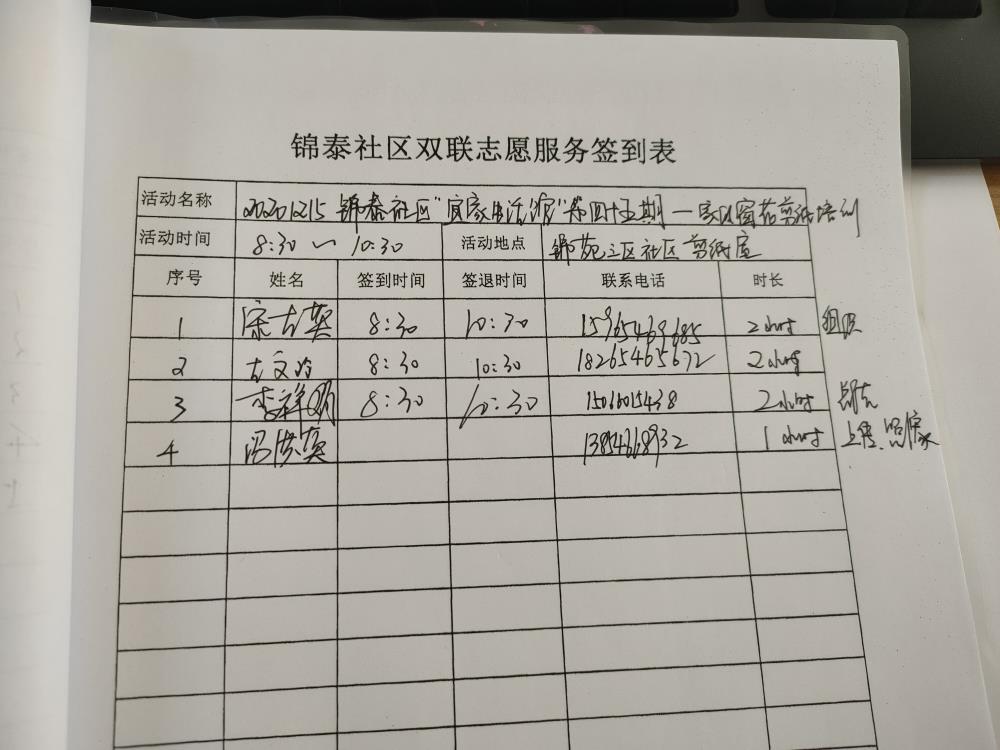 锦泰社区双联志愿服务签到表
活动名称 20201215 锦泰社区"宜家生活馆"第四十五期一 剪纸培训
活动时间 8:30 ~ 10:30 活动地点 锦苑三区社区剪纸室
序号 姓名 签到时间 签退时间 联系电话 时长
1 宋吉英 8:30 10:30 15965469685 2小时 组织
2 8:30 10:30 18265465672 2小时
3 李祥明 8:30 10:30 2小时
4 冯洪英 1小时 上传